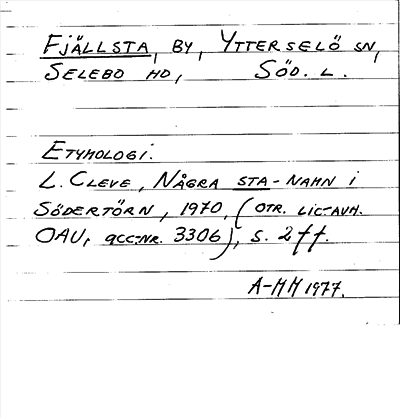 FJÄLLSTA, BY, YTTERSELÖ SN,
SELEBO HD, SÖD. L.
ETYMOLOGI.
L. CLEVE, NÅGRA STA-NAMN I
SÖDERTÖRN, 1970, (OTR. LIC-AVH.
OAU, acc-nr. 3306), S. 2ff.
A-MM 1977.